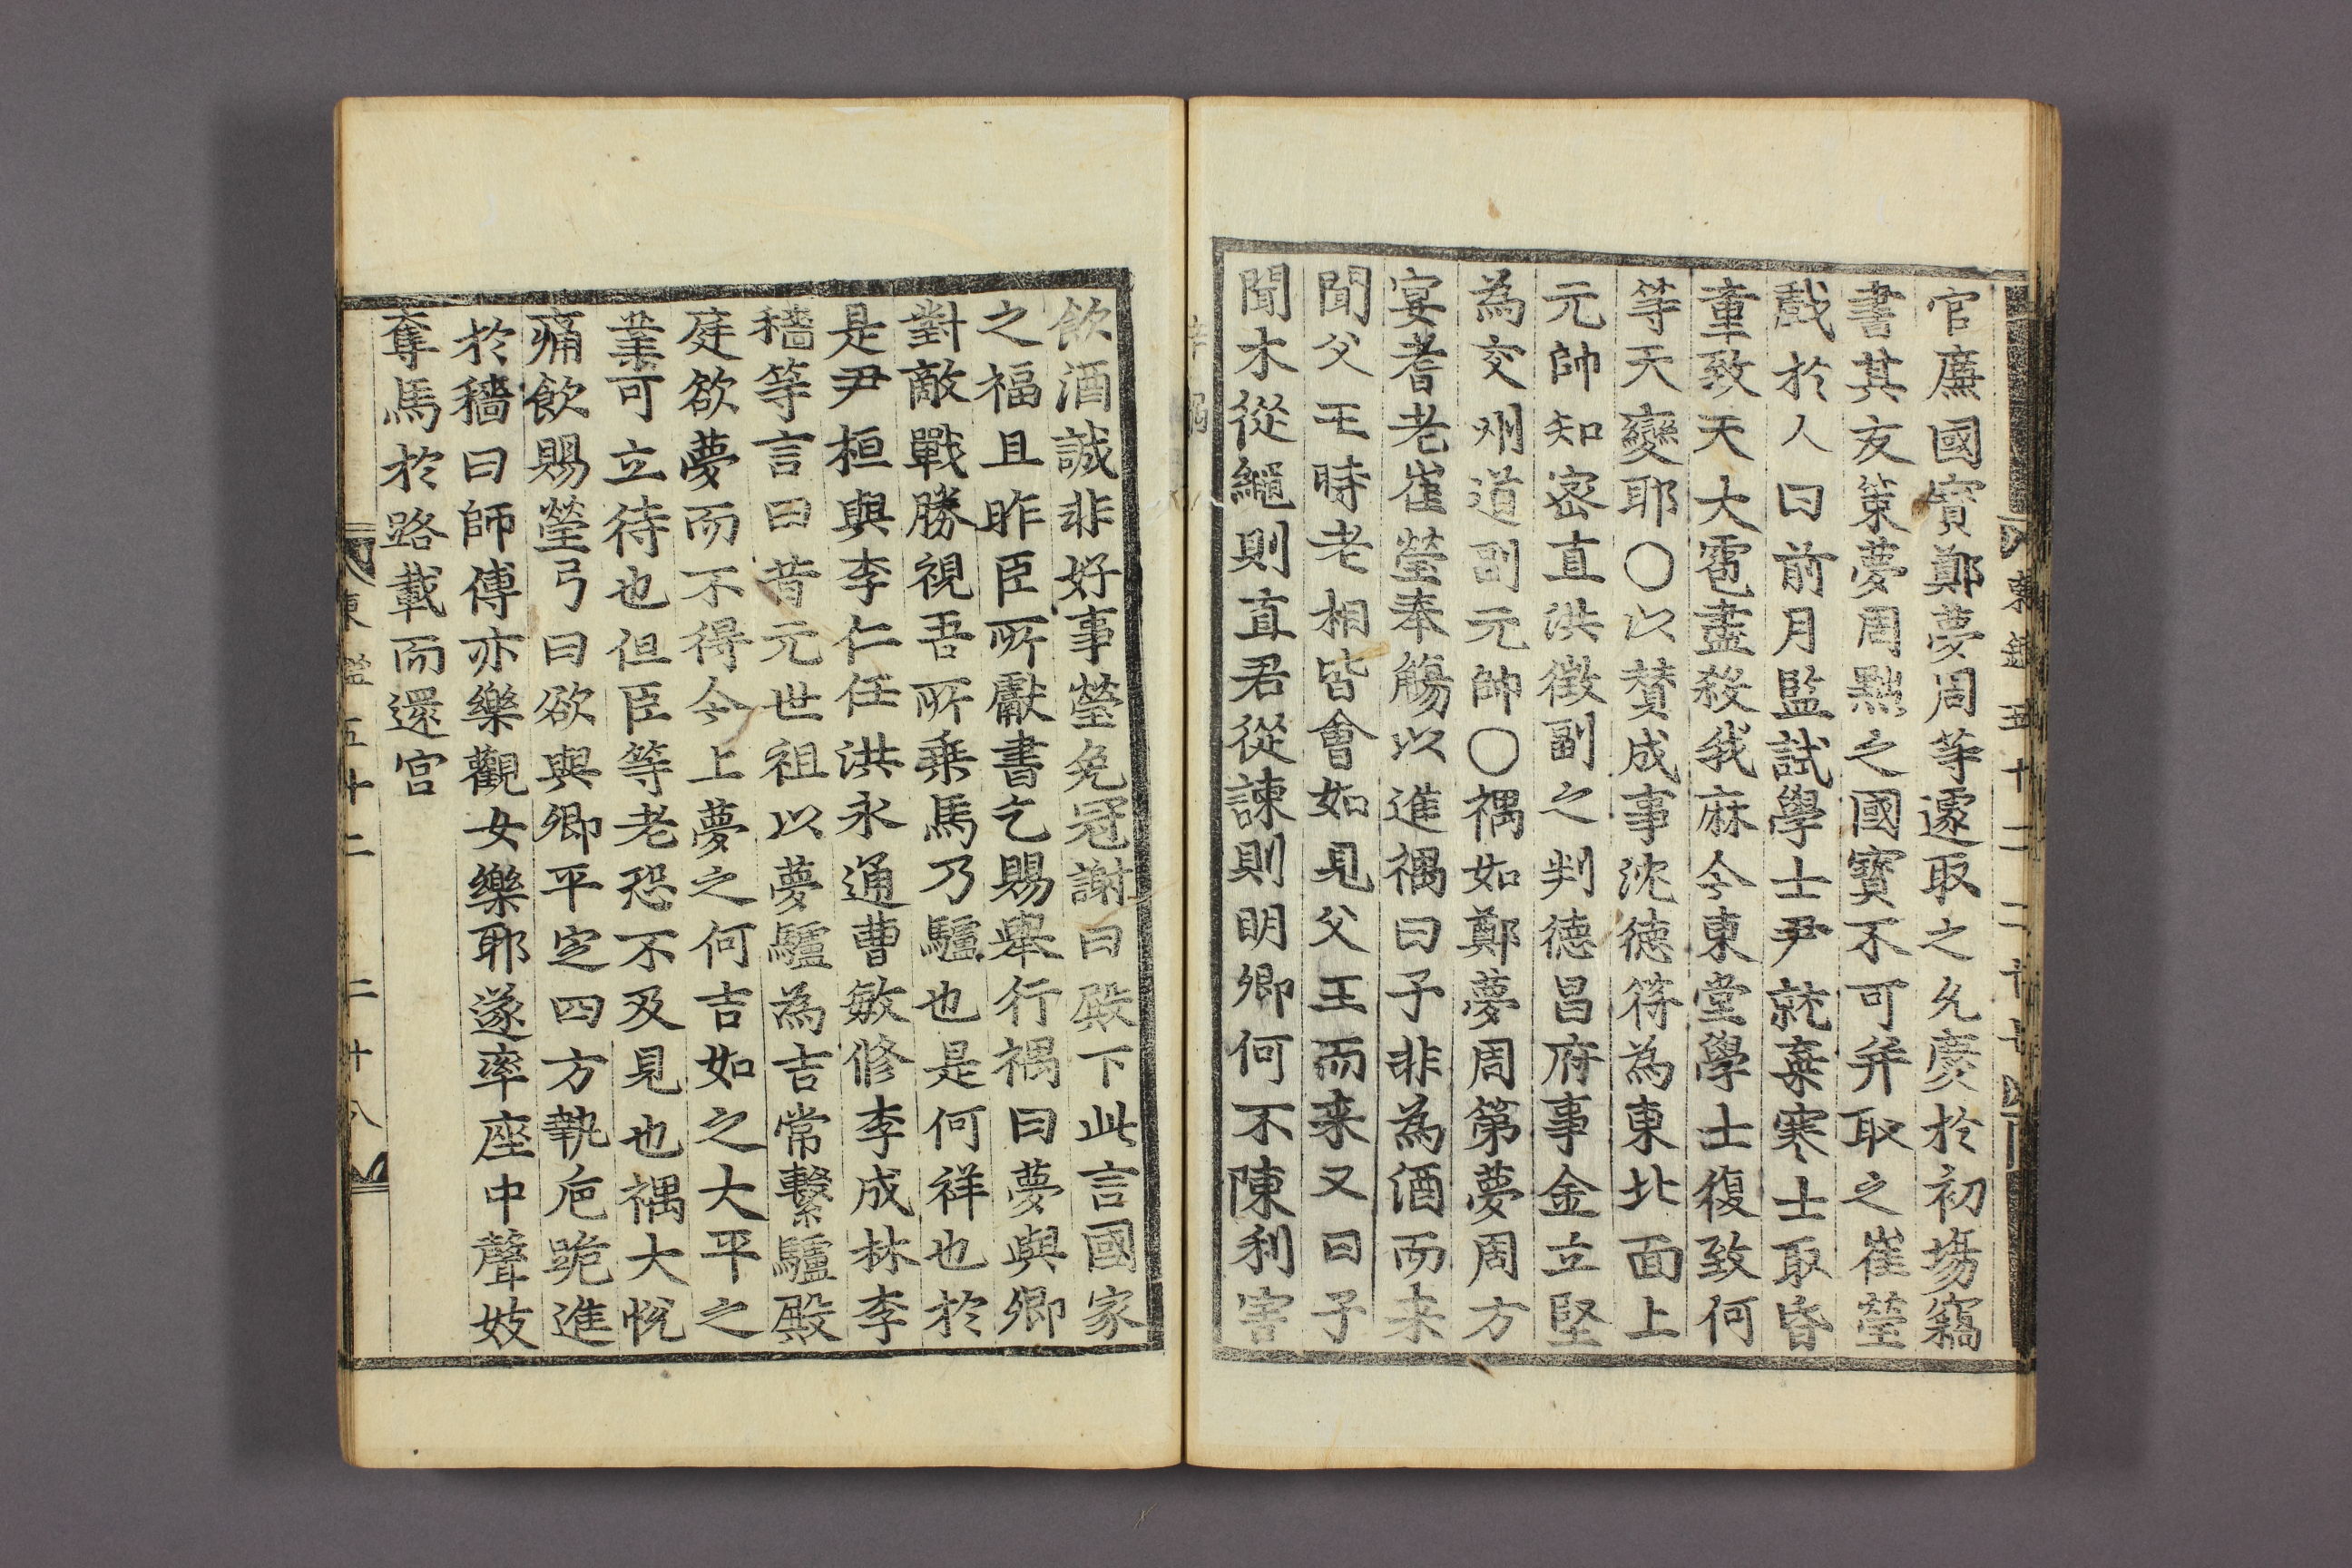 東鑑五十二 二十七
官廉國寳鄭夢周等遽取之允慶於初場竊
書其友策夢周㸃之國寳不可并取之崔瑩
戯於人曰前月監試學士尹就棄寒士取昏
童致天大雹盡殺我麻今東堂學士復致何
等天變耶○以賛成事沈德符為東北面上
元帥知密直洪徵副之判德昌府事金立堅
為交州道副元帥○禑如鄭夢周第夢周方
宴耆老崔瑩奉觴以進禑曰予非為酒而来
聞父王時老相皆會如見父王而来又曰予
聞木從繩則直君從諫則明卿何不陳利害
辛禑
飲酒誠非好事瑩免冠謝曰殿下此言國家
之福且昨臣所獻書乞賜舉行禑曰夢與卿
對敵戰勝視吾所乗馬乃驢也是何祥也於
是尹桓與李仁任洪永通曹敏修李成林李
穡等言曰昔元世祖以夢驢為吉常繫驢殿
庭欲夢而不得今上夢之何吉如之大平之
業可立待也但臣等老恐不及見也禑大悅
痛飲賜瑩弓曰欲與卿平定四方執巵跪進
於穡曰師傅亦樂觀女樂耶遂率座中聲妓
奪馬於路載而還宮
東鑑五十二 二十八